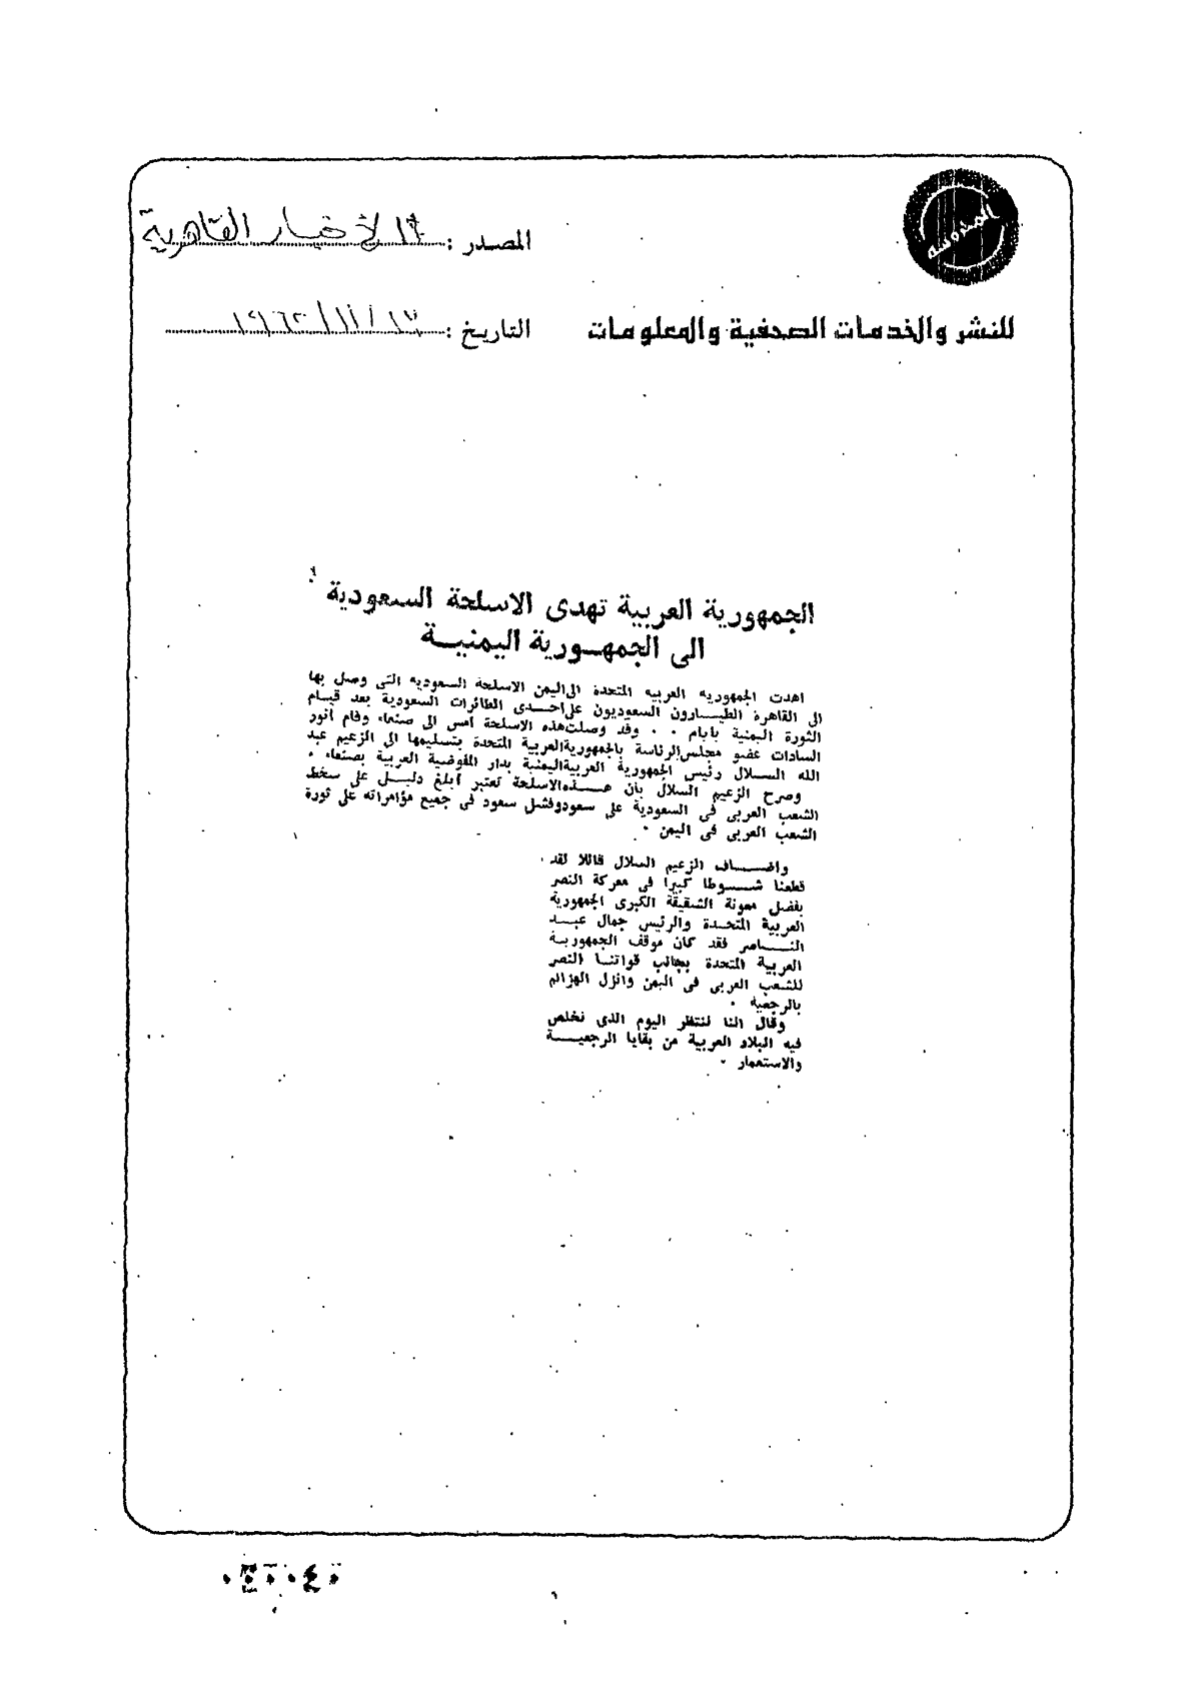 المصدر : الأخبار القاهرية
للنشر والخدمات الصحفية والمعلومات
التاريخ : ١٧/١١/١٩٦٢
الجمهورية العربية تهدى الاسلحة السعودية
الى الجمهـورية اليمنيـة
اهدت الجمهورية العربيه المتحدة الى اليمن الاسلحة السعوديه التى وصل بها
الى القاهرة الطيـارون السعوديون على احـدى الطائرات السعودية بعد قيـام
الثورة اليمنية بايام . . وقد وصلت هذه الاسلحة امس الى صنعاء وقام انور
السادات عضو مجلس الرئاسة بالجمهورية العربية المتحدة بتسليمها الى الزعيم عبد
الله السـلال رئيس الجمهورية العربية اليمنية بدار المفوضية العربية بصنعاء .
وصرح الزعيم السلال بان هـذه الاسلحة تعتبر ابلغ دليـل على سخط
الشعب العربى فى السعودية على سعود وفشل سعود فى جميع مؤامراته على ثورة
الشعب العربى فى اليمن .
واضـاف الزعيم السلال قائلا لقد
قطعنا شـوطا كبيرا فى معركة النصر
بفضل معونة الشقيقة الكبرى الجمهورية
العربية المتحـدة والرئيس جمال عبـد
النـاصر فقد كان موقف الجمهوريـة
العربية المتحدة بجانب قواتنـا النصر
للشعب العربى فى اليمن وانزل الهزائم
بالرجعية .
وقال اننا لننتظر اليوم الذى نخلص
فيه البلاد العربية من بقايا الرجعيـة
والاستعمار .